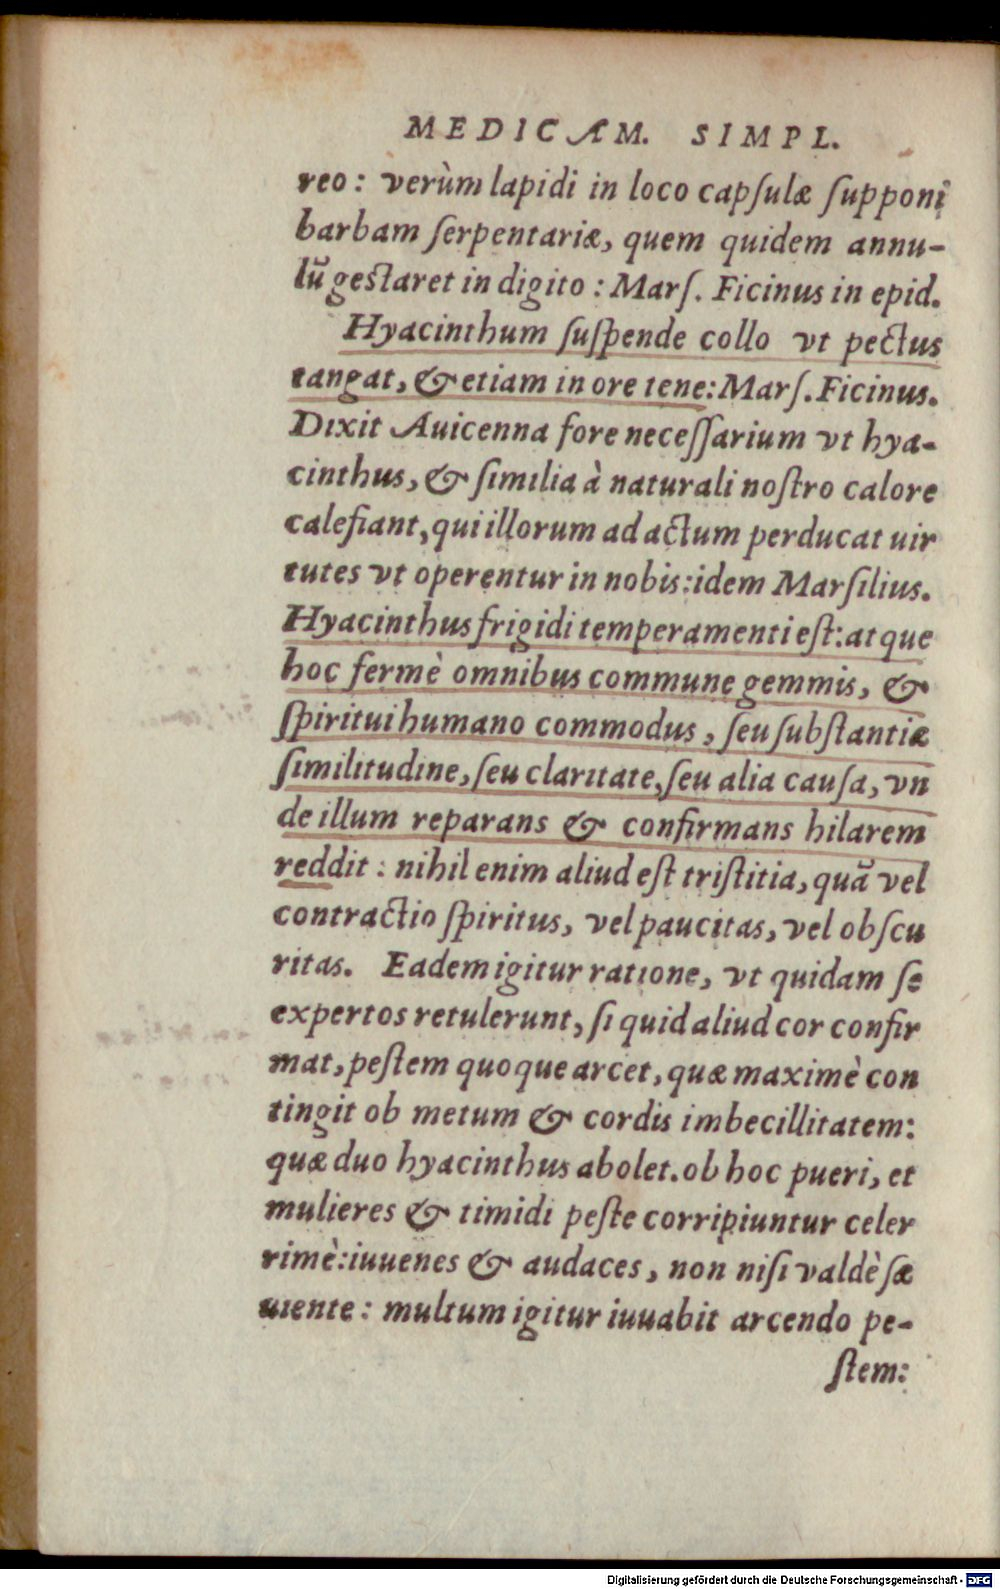 MEDICAM. SIMPL.
reo: verùm lapidi in loco capſulæ ſupponi
barbam ſerpentariæ, quem quidem annu-
lū geſtaret in digito: Marſ. Ficinus in epid.
Hyacinthum ſuſpende collo vt pectus
tangat, & etiam in ore tene: Marſ. Ficinus.
Dixit Auicenna fore neceſſarium vt hya-
cinthus, & ſimilia à naturali noſtro calore
calefiant, qui illorum ad actum perducat uir
tutes vt operentur in nobis: idem Marſilius.
Hyacinthus frigidi temperamenti eſt: atque
hoc fermè omnibus commune gemmis, &
ſpiritui humano commodus, ſeu ſubſtantiæ
ſimilitudine, ſeu claritate, ſeu alia cauſa, vn
de illum reparans & confirmans hilarem
reddit: nihil enim aliud eſt triſtitia, quā vel
contractio ſpiritus, vel paucitas, vel obſcu
ritas. Eadem igitur ratione, vt quidam ſe
expertos retulerunt, ſi quid aliud cor confir
mat, peſtem quoque arcet, quæ maximè con
tingit ob metum & cordis imbecillitatem:
quæ duo hyacinthus abolet. ob hoc pueri, et
mulieres & timidi peſte corripiuntur celer
rimè: iuuenes & audaces, non niſi valdè ſæ
uiente: multum igitur iuuabit arcendo pe-
ſtem:
Digitalisierung gefördert durch die Deutsche Forschungsgemeinschaft - DFG